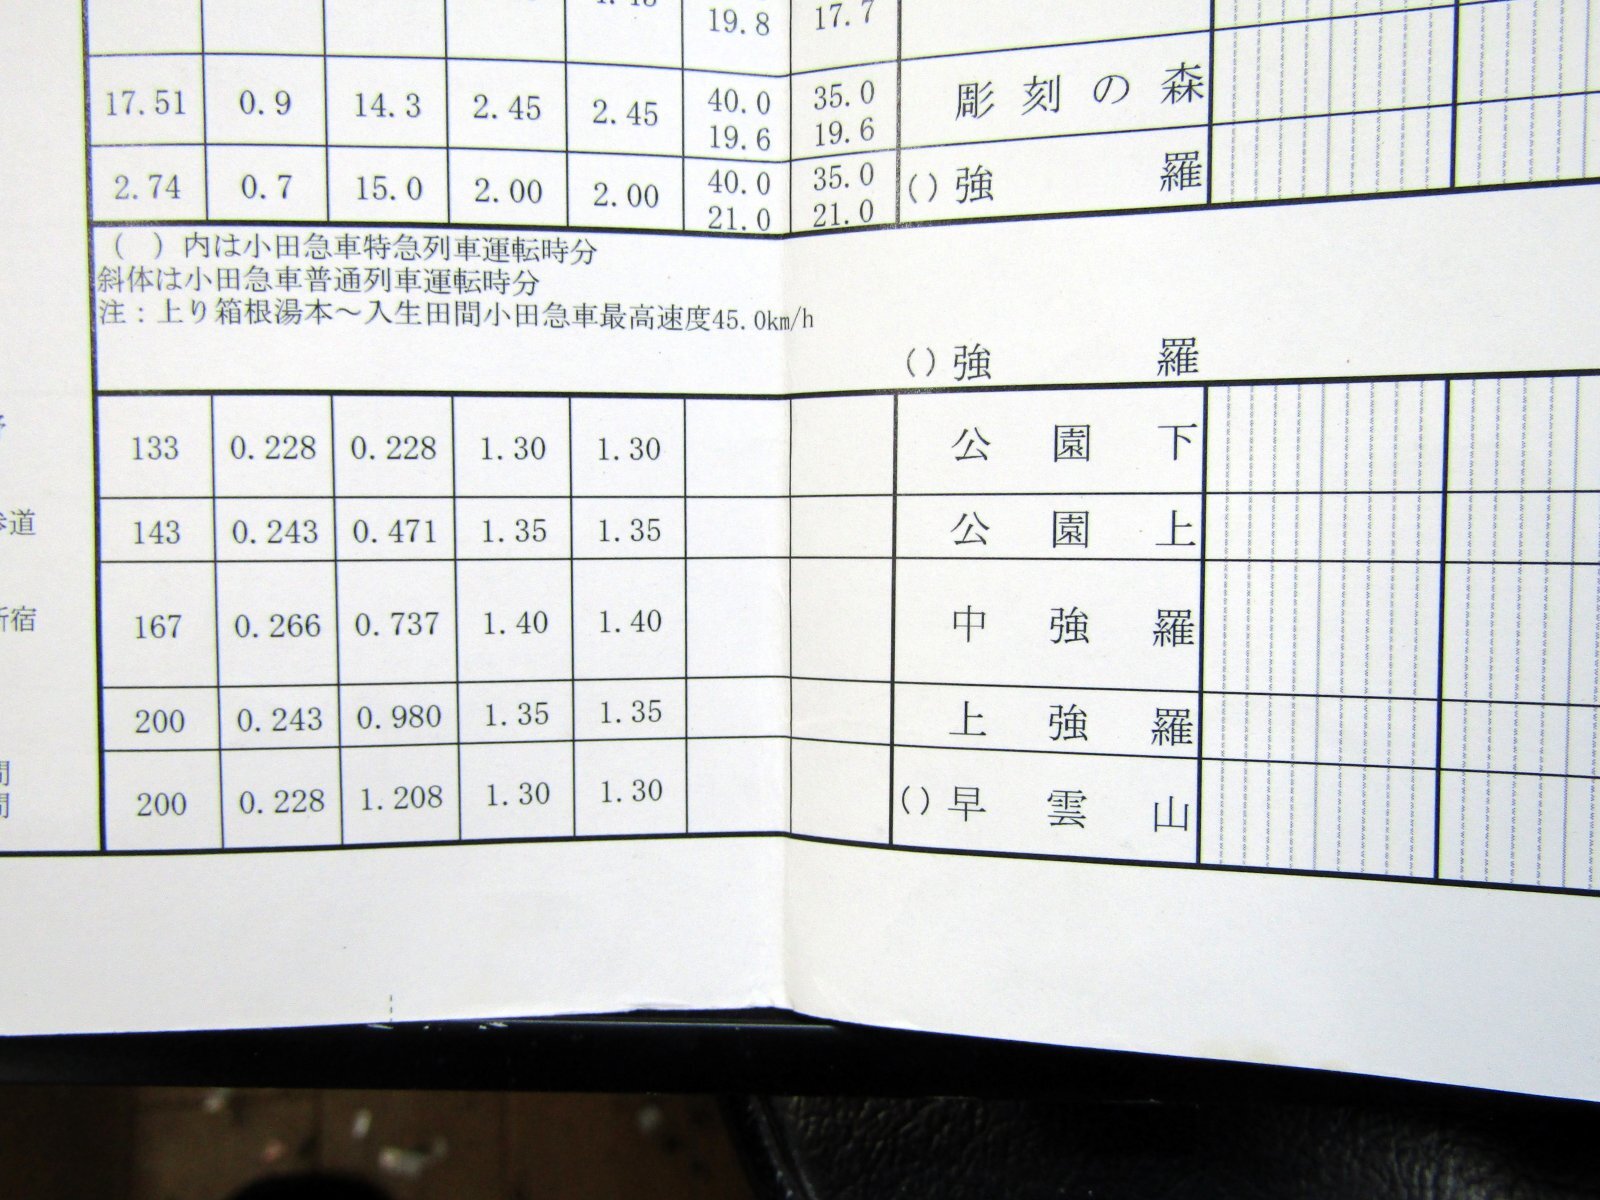 19.8 17.7
17.51 0.9 14.3 2.45 2.45 40.0 35.0 彫刻の森
19.6 19.6
2.74 0.7 15.0 2.00 2.00 40.0 35.0 ()強羅
21.0 21.0
( )内は小田急車特急列車運転時分
斜体は小田急車普通列車運転時分
注：上り箱根湯本～入生田間小田急車最高速度45.0km/h
()強羅
133 0.228 0.228 1.30 1.30 公園下
道 143 0.243 0.471 1.35 1.35 公園上
宿 167 0.266 0.737 1.40 1.40 中強羅
200 0.243 0.980 1.35 1.35 上強羅
間
間 200 0.228 1.208 1.30 1.30 ()早雲山